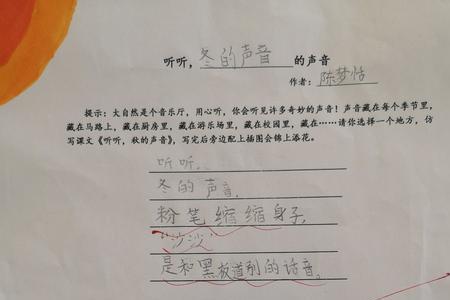 听听,冬的声音的声音
作者:陈梦恬
提示:大自然是个音乐厅,用心听,你会听见许多奇妙的声音!声音藏在每个季节里,
藏在马路上,藏在厨房里,藏在游乐场里,藏在校园里,藏在……请你选择一个地方,仿
写课文《听听,秋的声音》,写完后旁边配上插图会锦上添花。
听听,
冬的声音,
粉笔缩缩身子,
“沙沙”
是和黑板道别的话音。